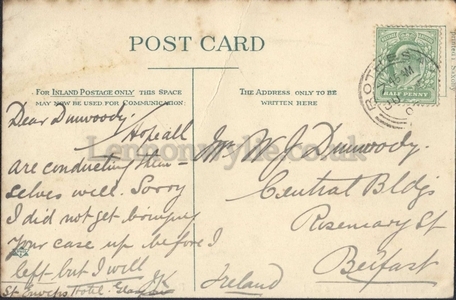 POST CARD
FOR ISLAND POSTAGE ONLY THIS SPACE
MAY NOW BE USED FOR COMMUNICATION:
THE ADDRESS ONLY TO BE
WRITTEN HERE
HALF PENNY
ROTHES
Dear Dunwoody,
Hope all
are conducting them-
selves well. Sorry
I did not get bringing
your case up before I
left but I will
St. Enochs Hotel.
Mr. W. J. Dunwoody.
Central Bldgs
Rosemary St
Belfast
Ireland
Lennonwylie.co.uk